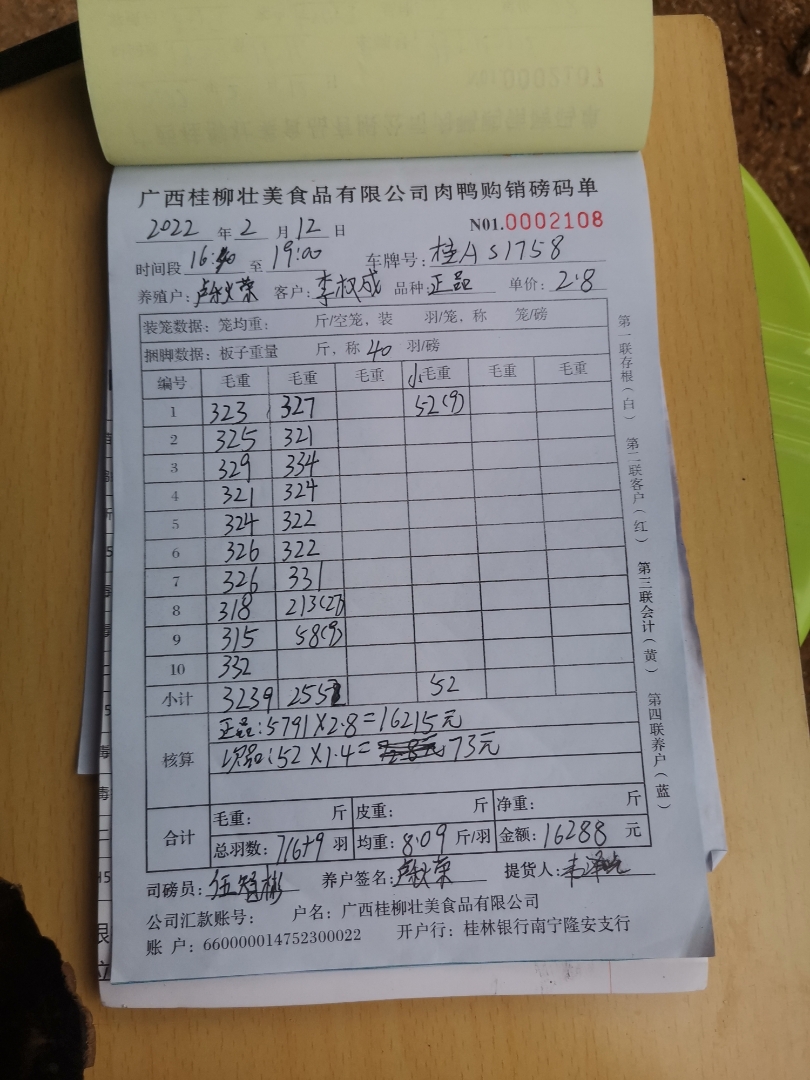 广西桂柳壮美食品有限公司肉鸭购销磅码单
2022 年 2 月 12 日 N01.0002108
时间段 16:40 至 19:00 车牌号: 桂A S1758
养殖户: 客户: 李权成 品种: 正品 单价: 2.8
装笼数据: 笼均重: 斤/空笼, 装 羽/笼, 称 笼/磅
捆脚数据: 板子重量 斤, 称 40 羽/磅
编号 毛重 毛重 毛重 毛重 毛重 毛重
1 323 327 52(9)
2 325 321
3 329 334
4 321 324
5 324 322
6 326 322
7 326 331
8 318 213(27)
9 315 58(9)
10 332
小计 3239 2552 52
核算 正品:5791×2.8=16215元
次品:52×1.4= 73元
合计 毛重: 斤 皮重: 斤 净重: 斤
总羽数: 716+9 羽 均重: 8.09 斤/羽 金额: 16288 元
司磅员: 伍智彬 养户签名: 提货人:
公司汇款账号: 户名: 广西桂柳壮美食品有限公司
账 户: 660000014752300022 开户行: 桂林银行南宁隆安支行
第一联存根(白) 第二联客户(红) 第三联会计(黄) 第四联养户(蓝)